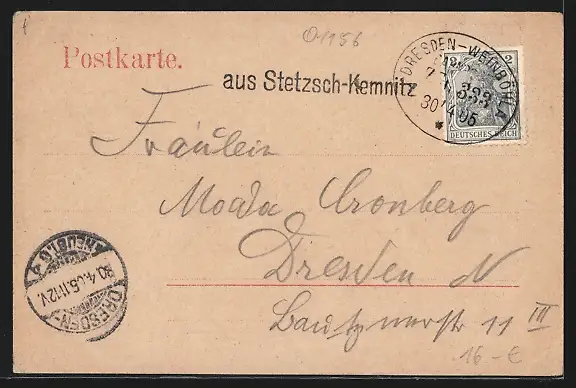 O1956
Postkarte.
aus Stetzsch-Kemnitz
DRESDEN-WEINBÖHLA
333
30/4 05
2
DEUTSCHES REICH
Fräulein
Moda Cronberg
Dresden N
Bautznerstr 11 III
DRESDEN-
30.4.05.11-12V.
16.-€